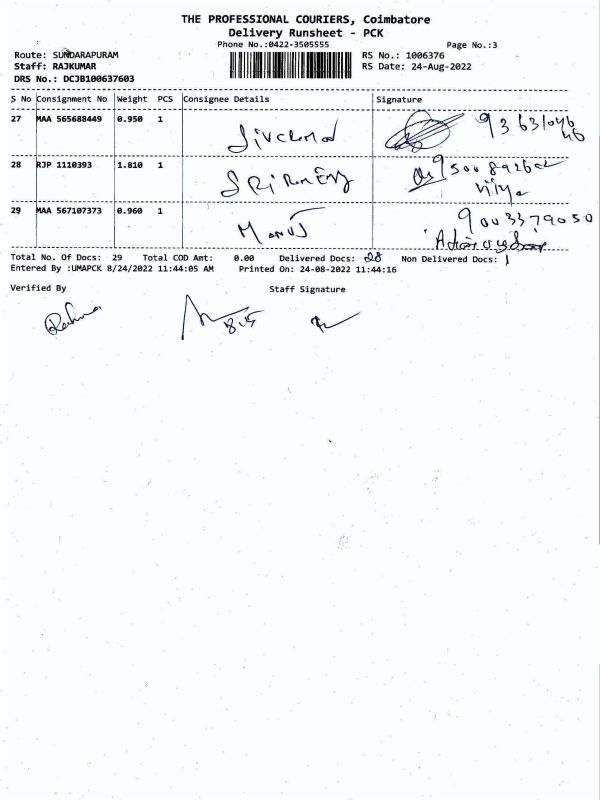 THE PROFESSIONAL COURIERS, Coimbatore
Delivery Runsheet - PCK
Phone No.:0422-3505555 Page No.:3
Route: SUNDARAPURAM RS No.: 1006376
Staff: RAJKUMAR RS Date: 24-Aug-2022
DRS No.: DCJB100637603
S No Consignment No Weight PCS Consignee Details Signature
27 MAA 565688449 0.950 1
28 RJP 1110393 1.810 1
29 MAA 567107373 0.960 1 9003379050
Total No. Of Docs: 29 Total COD Amt: 0.00 Delivered Docs: 28 Non Delivered Docs: 1
Entered By :UMAPCK 8/24/2022 11:44:05 AM Printed On: 24-08-2022 11:44:16
Verified By Staff Signature